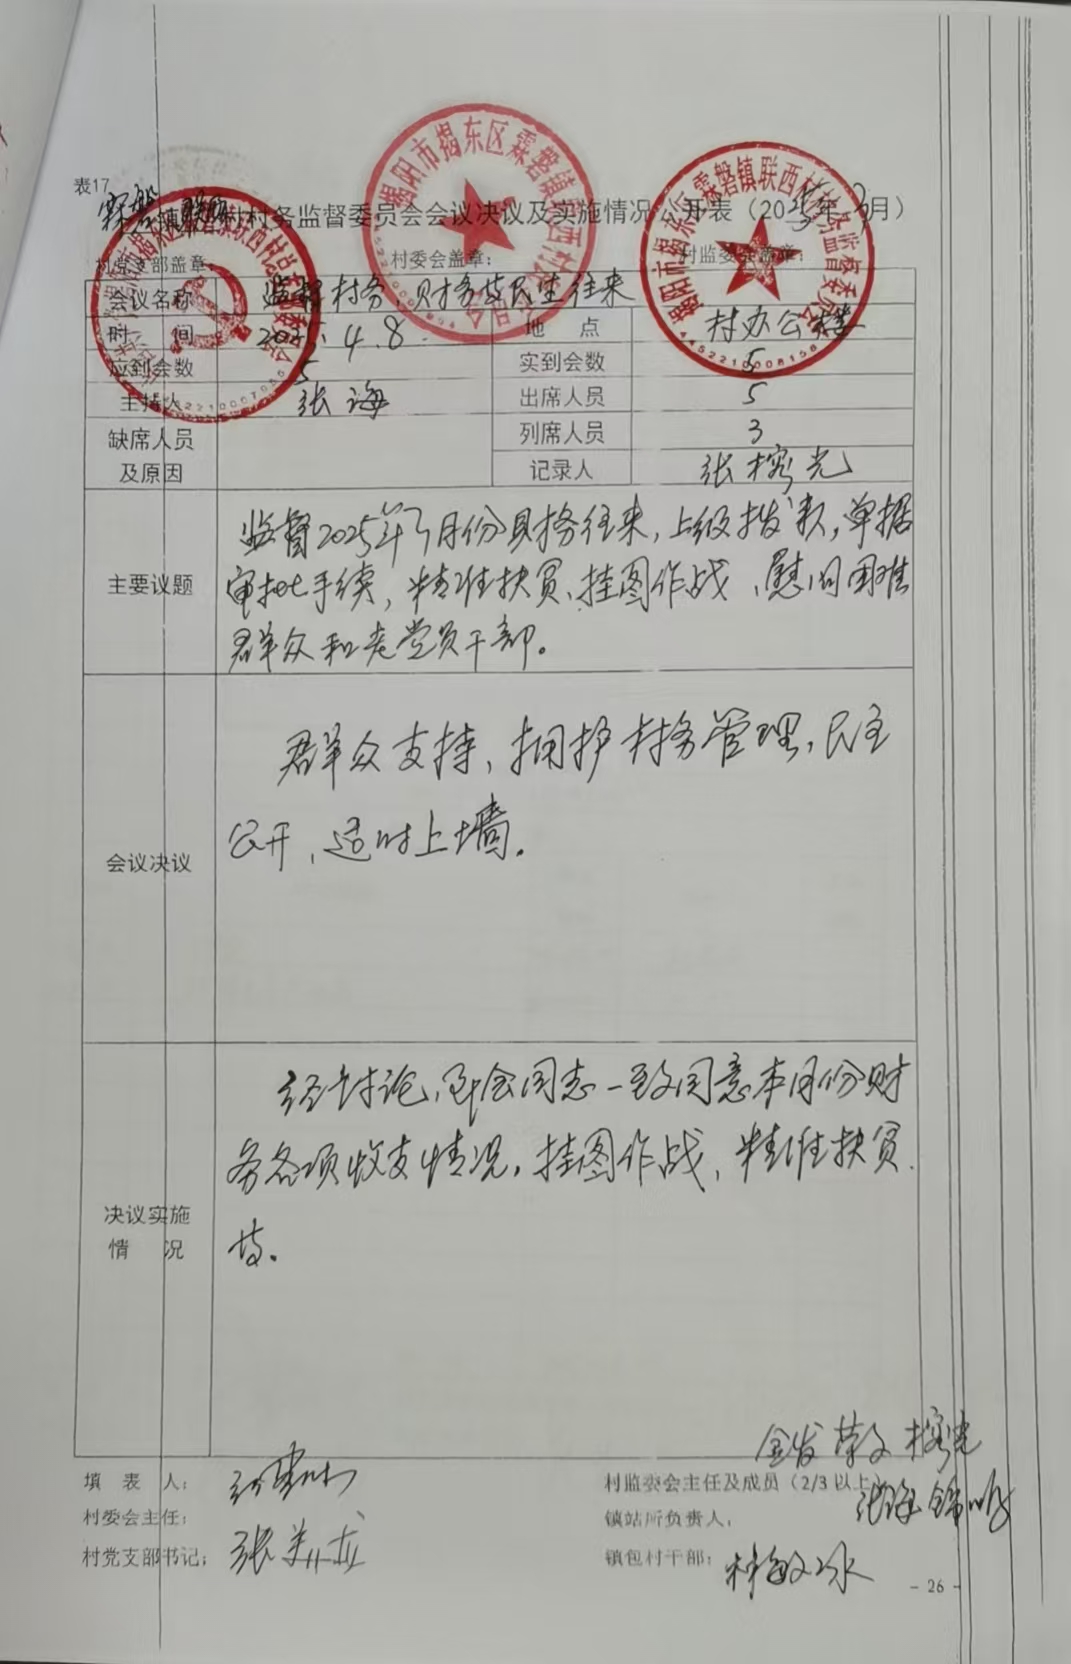 表17
霖磐镇联西村村务监督委员会会议决议及实施情况公开表（2025年3月）
村党支部盖章： 村委会盖章： 村监委会盖章：
会议名称 监督村务、财务及民生往来
时 间 2025.4.8 地 点 村办公楼
应到会数 5 实到会数 5
主持人 张海 出席人员 5
缺席人员及原因 列席人员 3
记录人 张榕光
主要议题
监督2025年3月份财务往来，上级拨款，单据
审批手续，精准扶贫、挂图作战、慰问困难
群众和老党员干部。
会议决议
群众支持，拥护村务管理，民主
公开，适时上墙。
决议实施情况
经讨论，到会同志一致同意本月份财
务各项收支情况，挂图作战，精准扶贫
等。
填 表 人：
村委会主任：
村党支部书记：
村监委会主任及成员（2/3以上）
金发 荣文 榕光
张海
镇站所负责人：
镇包村干部：
- 26 -
揭阳市揭东区霖磐镇联西村
揭阳市揭东区霖磐镇联西村村务监督委员会
4452210008158